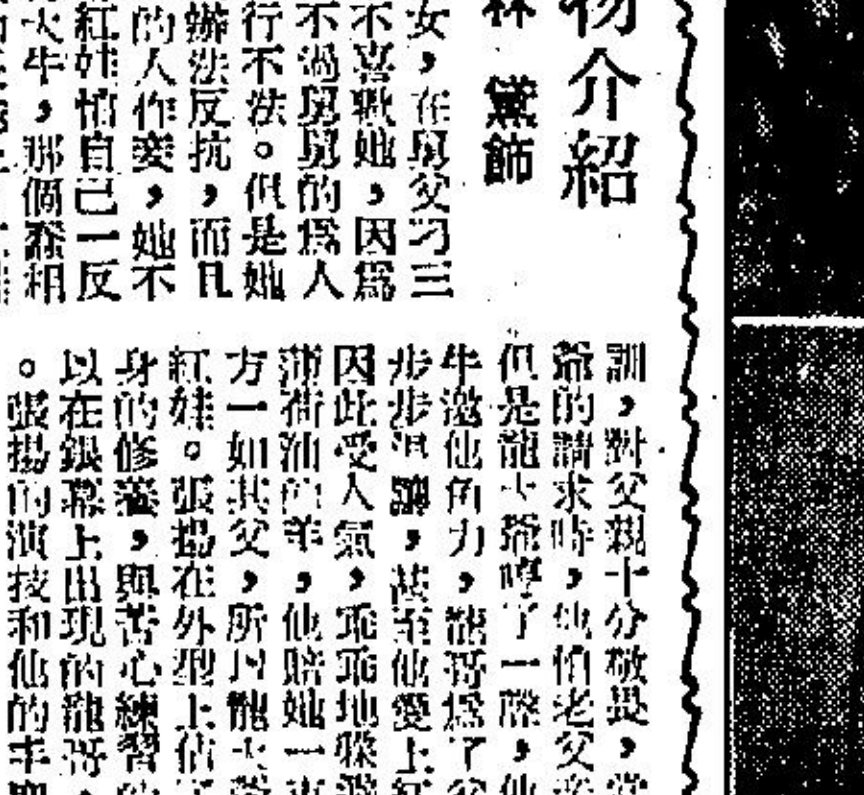 物介紹
林黛飾
女，在舅父刁三
不喜歡她，因爲
不過舅舅的爲人
行不法。但是她
辦法反抗，而且
的人作妾，她不
紅娃怕自己一反
火牛，那個蠢相
訓，對父親十分敬畏，當
爺的請求時，他怕老父
但是龍大爺哼了一聲，他
牛邀他角力，龍哥爲了
步步退讓，甚至他愛上紅
因此受人氣，乖乖地躲
蒲荷油的羊，他賠她一
方一如其父，所以龍大爺
紅娃。張揚在外型上佔了
身的修養，與苦心練習
以在銀幕上出現的龍哥，
。張揚的演技和他的丰